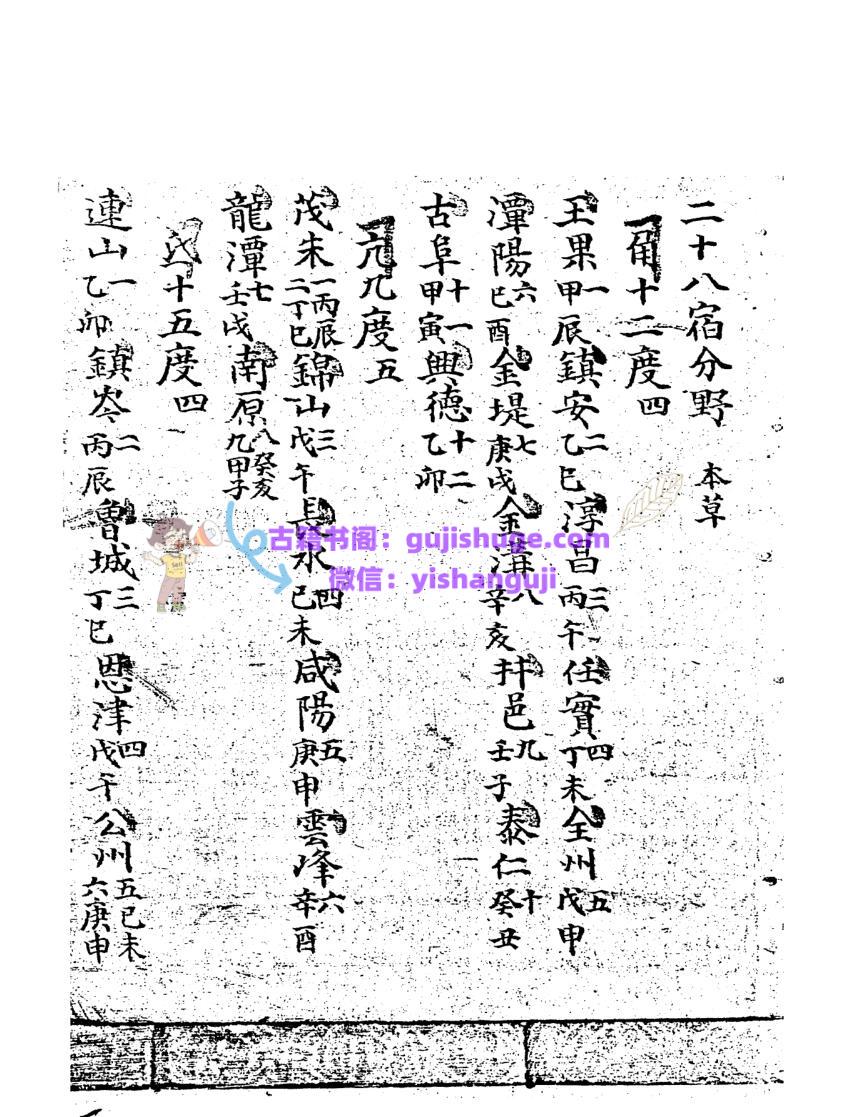 二十八宿分野 本草
角十二度四
王果一甲辰鎮安二乙巳淳昌三丙午任實四丁未全州五戊申
潭陽六己酉金堤七庚戌金溝八辛亥井邑九壬子泰仁十癸丑
古阜十一甲寅興德十二乙卯
亢九度五
茂朱一丙辰二丁巳錦山三戊午長水四己未咸陽五庚申雲峰六辛酉
龍潭七壬戌南原八癸亥九甲子
氐十五度四
連山一乙卯鎮岑二丙辰魯城三丁巳恩津四戊午公州五己未六庚申
古籍书阁：gujishuge.com
微信：yishanguji